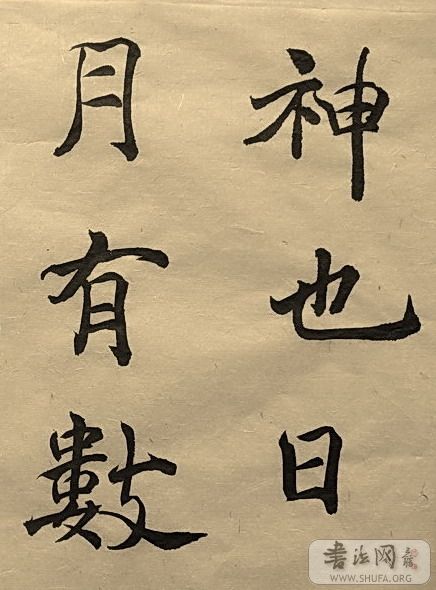 神也日
月有數
書法网
WWW.SHUFA.ORG